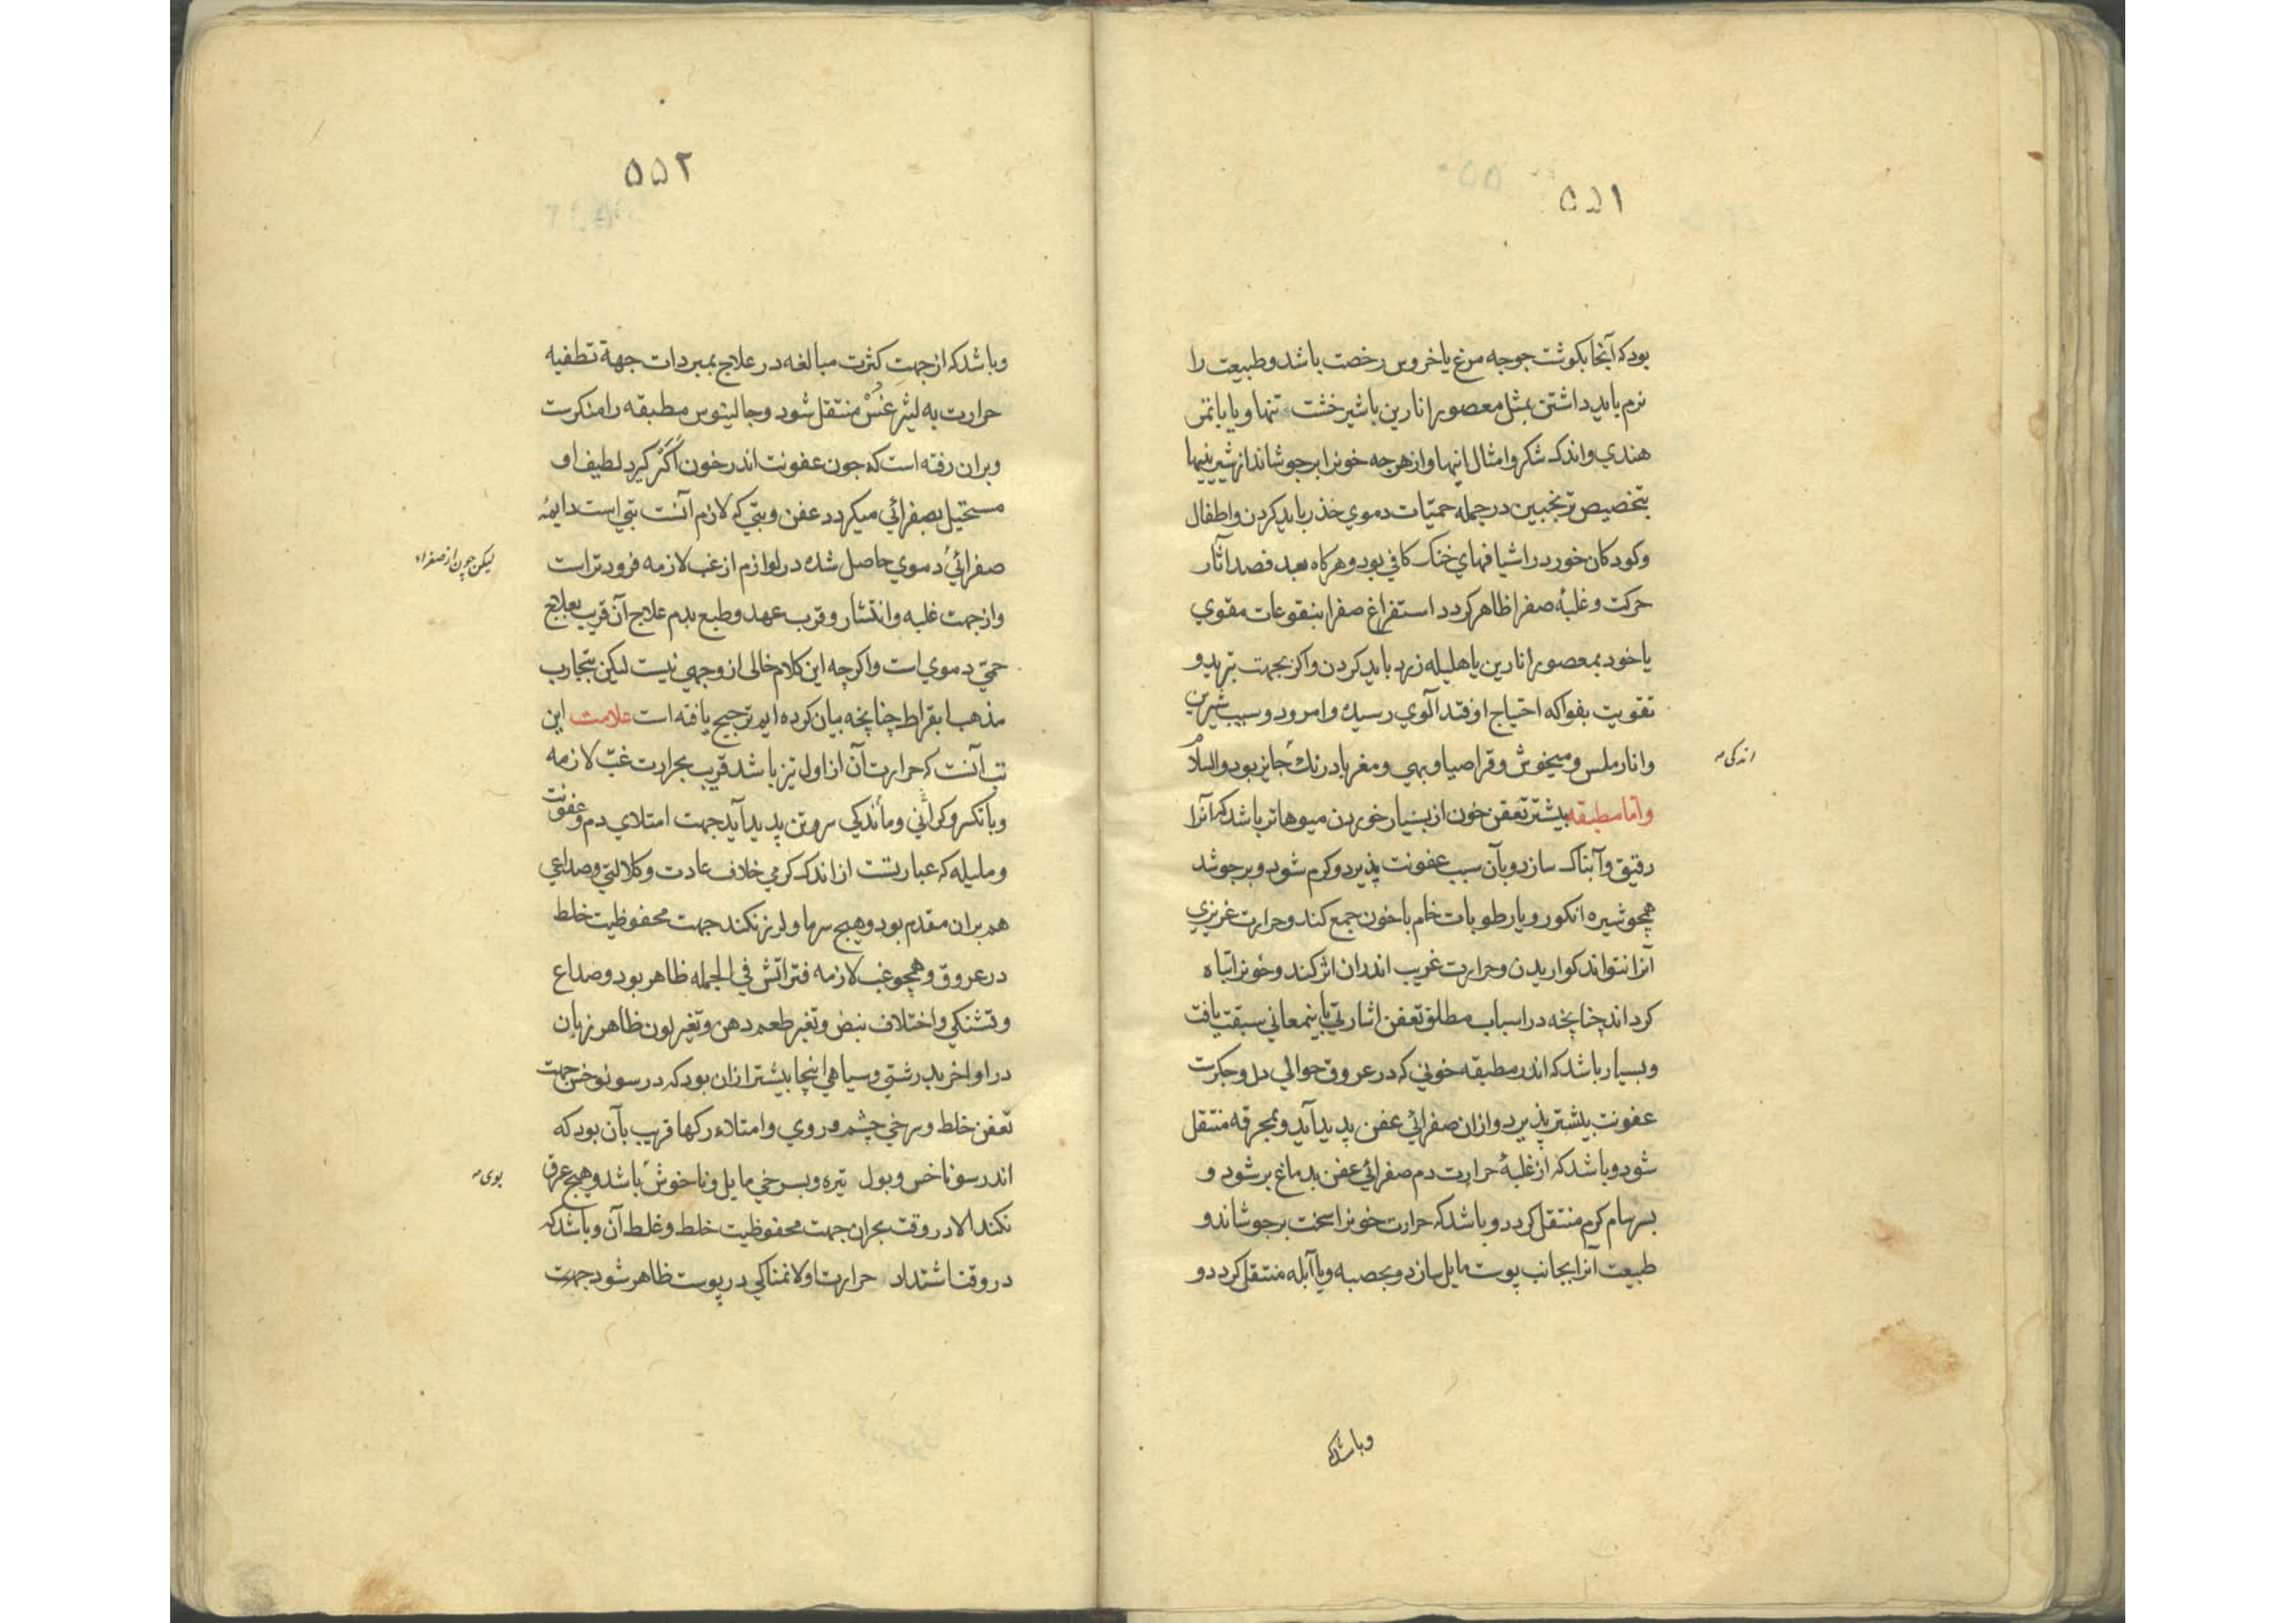 ۵۵۱
بودکه آنجا بکوشت جوجه مرغ یا خروس رخصت باشد وطبیعت را
نرم باید داشتن بمثل معصور انارین با شیرخشت تنها ویا باتمر
هندي واندک شکر وامثال اینها وازهرجه خونرا برجوشاند از شیرینیها
بتخصیص ترنجبین درجمله حمیّات دموي حذر باید کردن واطفال
وکودکان خورد را شیافهاي خنک کافي بود وهرکاه بعد فصد آثار
حرکت وغلبهٔ صفرا ظاهر کردد استفراغ صفرا بنقوعات مقوي
یا خود بمعصور انارین یا هلیله زرد باید کردن واکر بجهت تبرید و
تقویت بفواکه احتیاج اوفتد آلوي رسیده وامرود وسیب شیرین
وانار ملس ومیخوش وقراصیا وبهي ومغز بادرنک جایز بود والسلام
اندکی
واما مطبقه بیشتر تعفن خون از بسیار خوردن میوهاتر باشد که آنرا
رقیق وآبناک سازد وبآن سبب عفونت پذیرد وکرم شود وبرجوشد
همچو شیره انکور ویا رطوبات خام با خون جمع کند وحرارت غریزي
آنرا نتواند کواریدن وحرارت غریب اندران اثر کند وخونرا تباه
کرداند چنانچه در اسباب مطلق تعفن اشارتي باینمعاني سبقت یافت
وبسیار باشد که اندر مطبقه خوني که در عروق حوالي دل وجکرست
عفونت بیشتر پذیرد وازان صفرائي عفن پدید آید وبمحرقه منتقل
شود وباشد که از غلبهٔ حرارت دم صفرائي عفن بدماغ بر شود و
بسرسام کرم منتقل کردد وباشد که حرارت خونرا سخت برجوشاند و
طبیعت آنرا بجانب پوست مایل سازد وبحصبه ویا آبله منتقل کردد و
وباشدکه
۵۵۲
وباشد که از جهتِ کثرت مبالغه در علاج بمبردات جهة تطفیه
حرارت به لیثرغس منتقل شود وجالینوس مطبقه را منکرست
وبران رفته است که جون عفونت اندر خون اکر کیرد لطیف او
مستحیل بصفرائي میکردد عفن وتبّي که لازم آنست تبي است دایمهٔ
صفرائي دموي حاصل شده در لوازم از غب لازمه فروتر است
لیکن چون از صفراء
واز جهت غلبه وانتشار وقرب عهد وطبع بدم علاج آن قریب بعلاج
حمیّ دموي است واکرچه این کلام خالی از وجهي نیست لیکن بتجارب
مذهب ابقراط چنانچه بیان کرده ایم ترجیح یافته است علامت این
تب آنست که حرارت آن از اول تیز باشد قریب بحرارت غبّ لازمه
وباتکسر وکراني وماندکي سروتن پدید آید جهت امتلاي دم وعفونت
وملیله که عبارتست از اندک کرمي خلاف عادت وکلالتي وصداعي
هم بران مقدم بود وهیج سرما ولرز نکند جهت محفوظیت خلط
در عروق وهمچو غب لازمه فتراتش في الجمله ظاهر بود وصداع
وتشنکي واختلاف نبض وتغیر طعم دهن وتغیر لون ظاهر زبان
در اواخر بدرشتي وسیاهي اینجا بیشتر ازان بود که در سونوخس جهت
تعفن خلط وسرخي چشم وروي وامتلاء رکها قریب بآن بود که
اندر سوناخس وبول تیره وبسرخي مایل وناخوش باشد وهیج عرق
بوی
نکند الا در وقت بحران جهت محفوظیت خلط وغلظ آن وباشد که
در وقت اشتداد حرارت اولا نمناکي در پوست ظاهر شود جهت